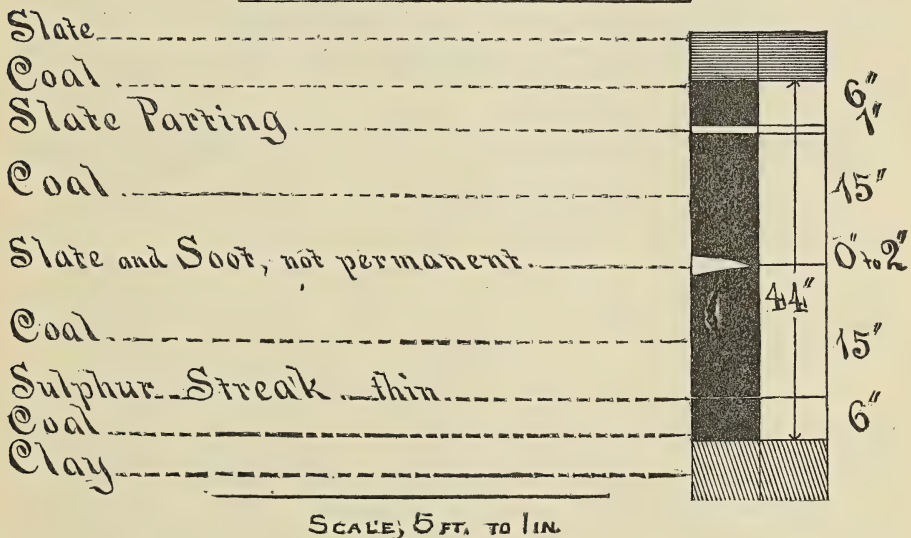 Slate
Coal
6"
Slate Parting
1"
Coal
15"
Slate and Soot, not permanent.
0" to 2"
44"
Coal
15"
Sulphur Streak thin
Coal
6"
Clay
SCALE; 5 FT. TO 1 IN.